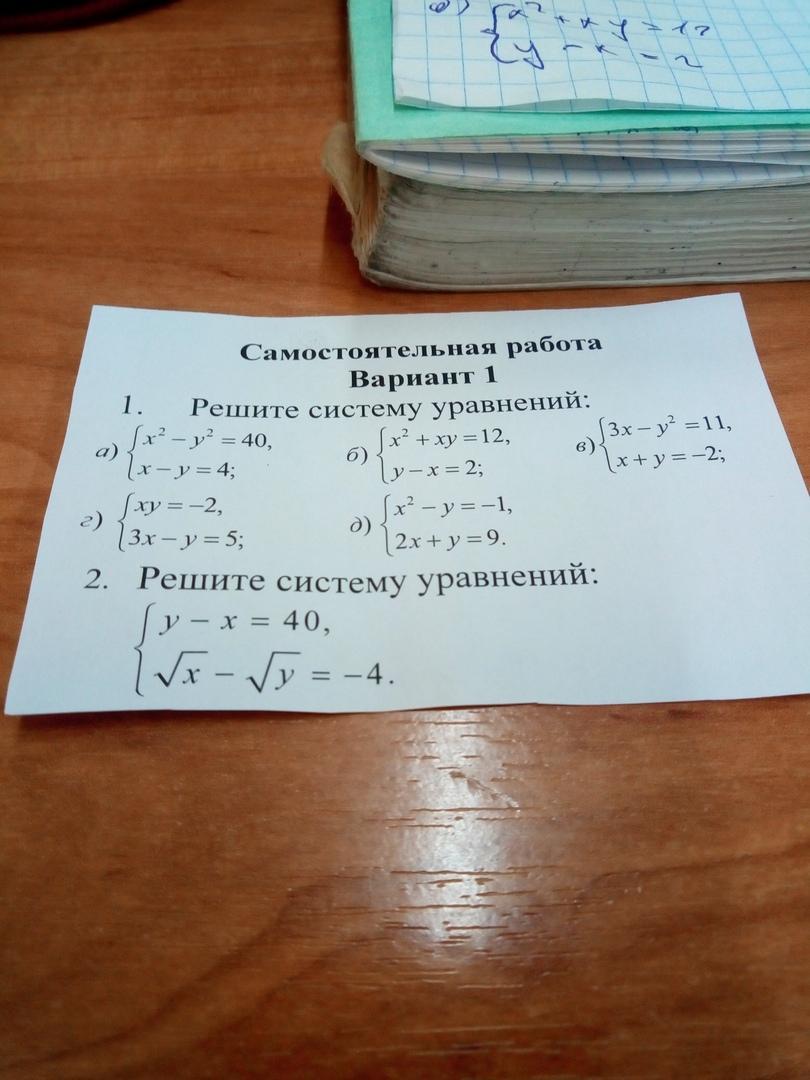 {x² + xy = 12
{y - x = 2
Самостоятельная работа
Вариант 1
1. Решите систему уравнений:
а) {x² − y² = 40, б) {x² + xy = 12, в) {3x − y² = 11,
{x − y = 4; {y − x = 2; {x + y = −2;
г) {xy = −2, д) {x² − y = −1,
{3x − y = 5; {2x + y = 9.
2. Решите систему уравнений:
{y − x = 40,
{√x − √y = −4.